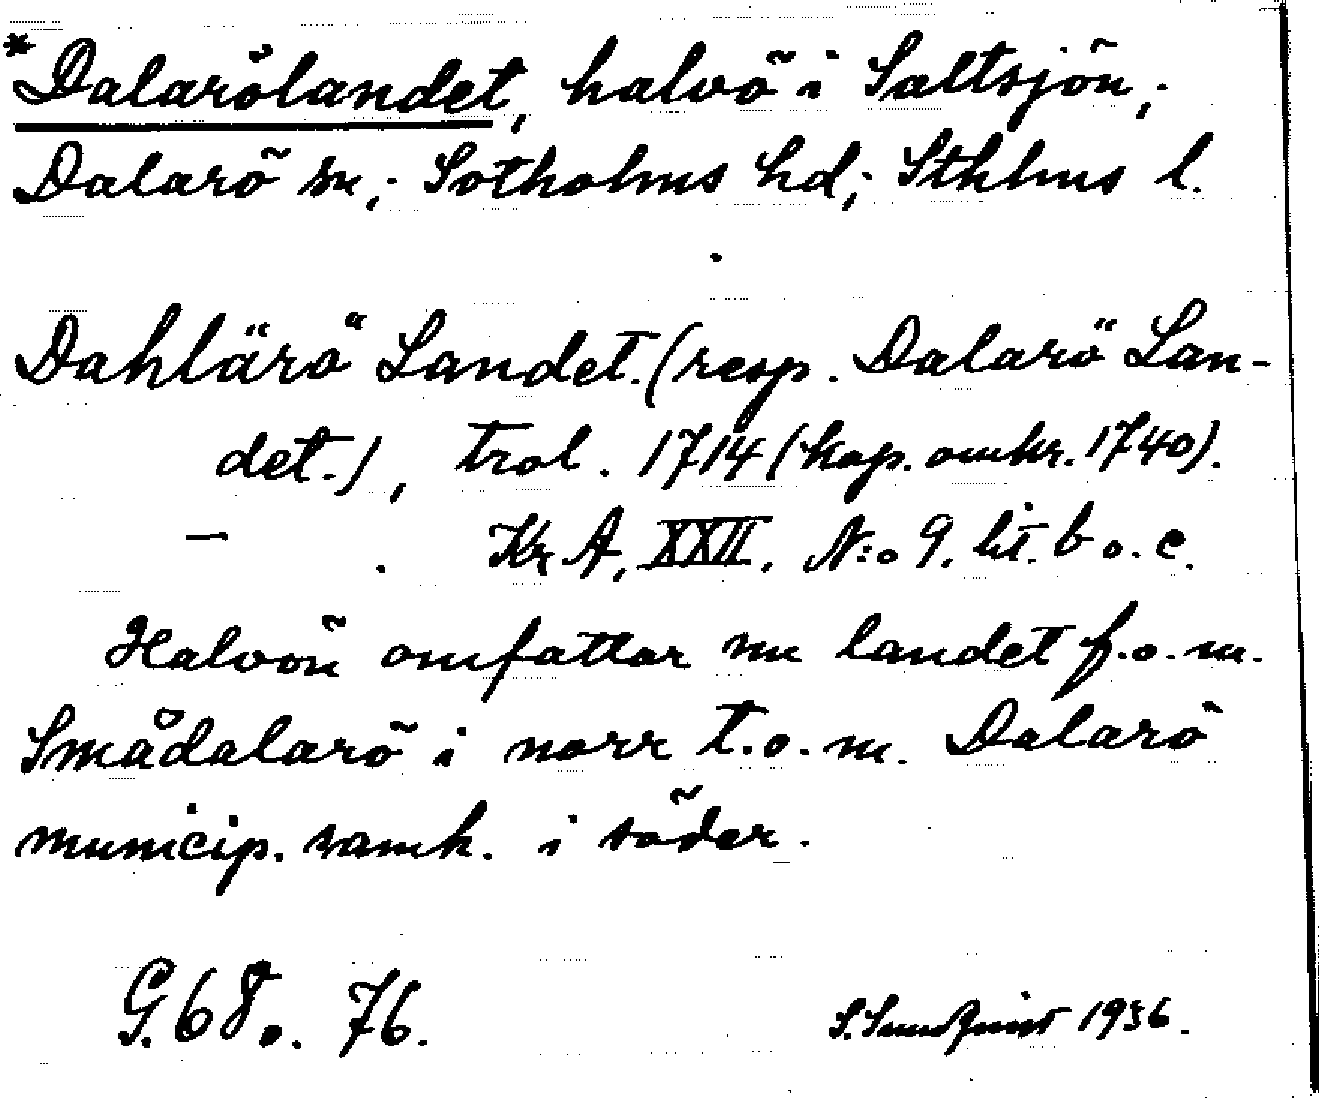 *Dalarölandet, halvö i Saltsjön;
Dalarö sn; Sotholms hd; Sthlms l.
Dahlärö Landet. (resp. Dalarö Lan-
det.), trol. 1714 (kop. omkr. 1740).
— Kr A, XXII. N:o 9. lit. b o. c.
Halvön omfattar nu landet fr.o.m.
Smådalarö i norr t.o.m. Dalarö
municip. samh. i söder.
G. 68. 76.
S. Sundquist 1936.